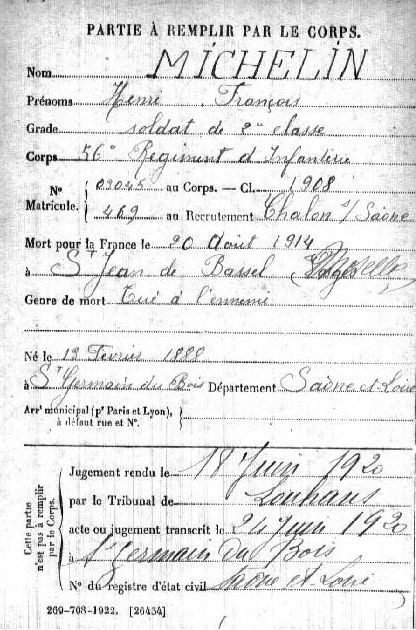 PARTIE À REMPLIR PAR LE CORPS.
Nom MICHELIN
Prénoms Henri François
Grade soldat de 2e classe
Corps 56e Régiment d'Infanterie
N° Matricule. { 03045 au Corps. — Cl. 1908
469 au Recrutement Chalon s/ Saône
Mort pour la France le 20 Août 1914
à St Jean de Bassel Moselle
Genre de mort Tué à l'ennemi
Né le 13 Février 1888
à St Germain du Bois Département Saône et Loire
Arrt municipal (pr Paris et Lyon), à défaut rue et N°.
Cette partie n'est pas à remplir par le Corps.
Jugement rendu le 18 Juin 1920
par le Tribunal de Louhans
acte ou jugement transcrit le 24 Juin 1920
à St Germain du Bois
N° du registre d'état civil Saône et Loire
269-708-1922. [26434]